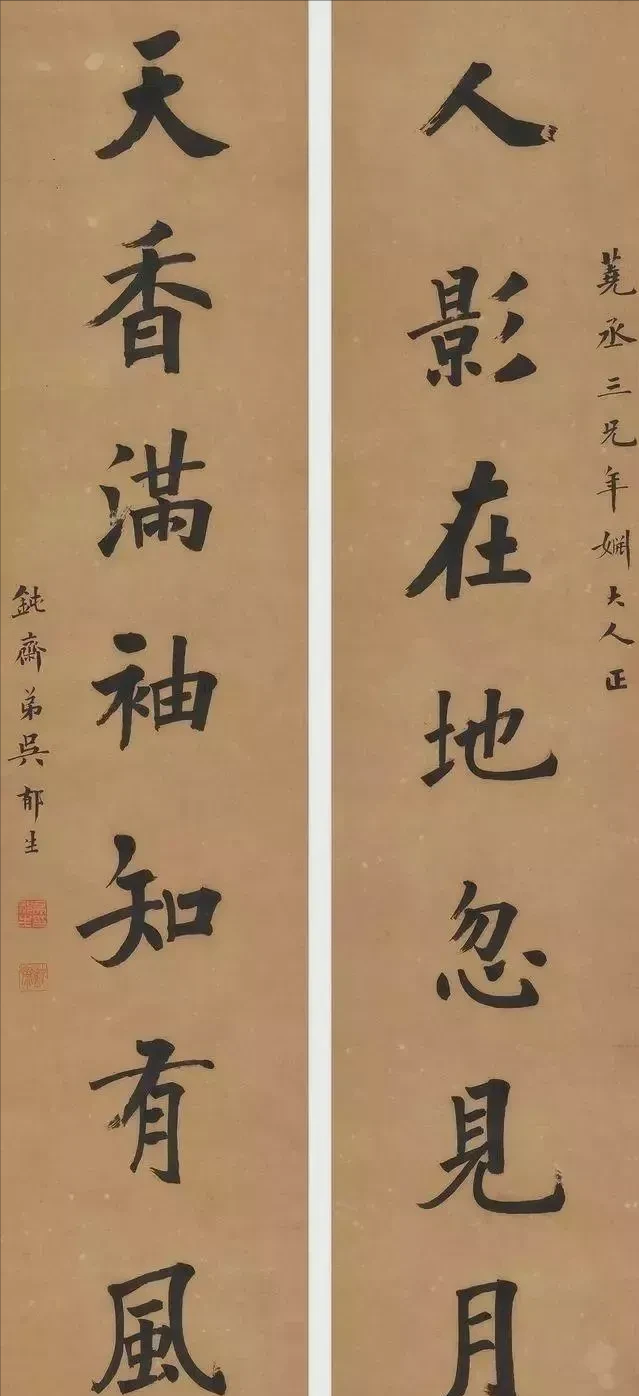 蕘丞三兄年姻大人正
人影在地忽見月
天香滿袖知有風
鈍齋弟吳郁生